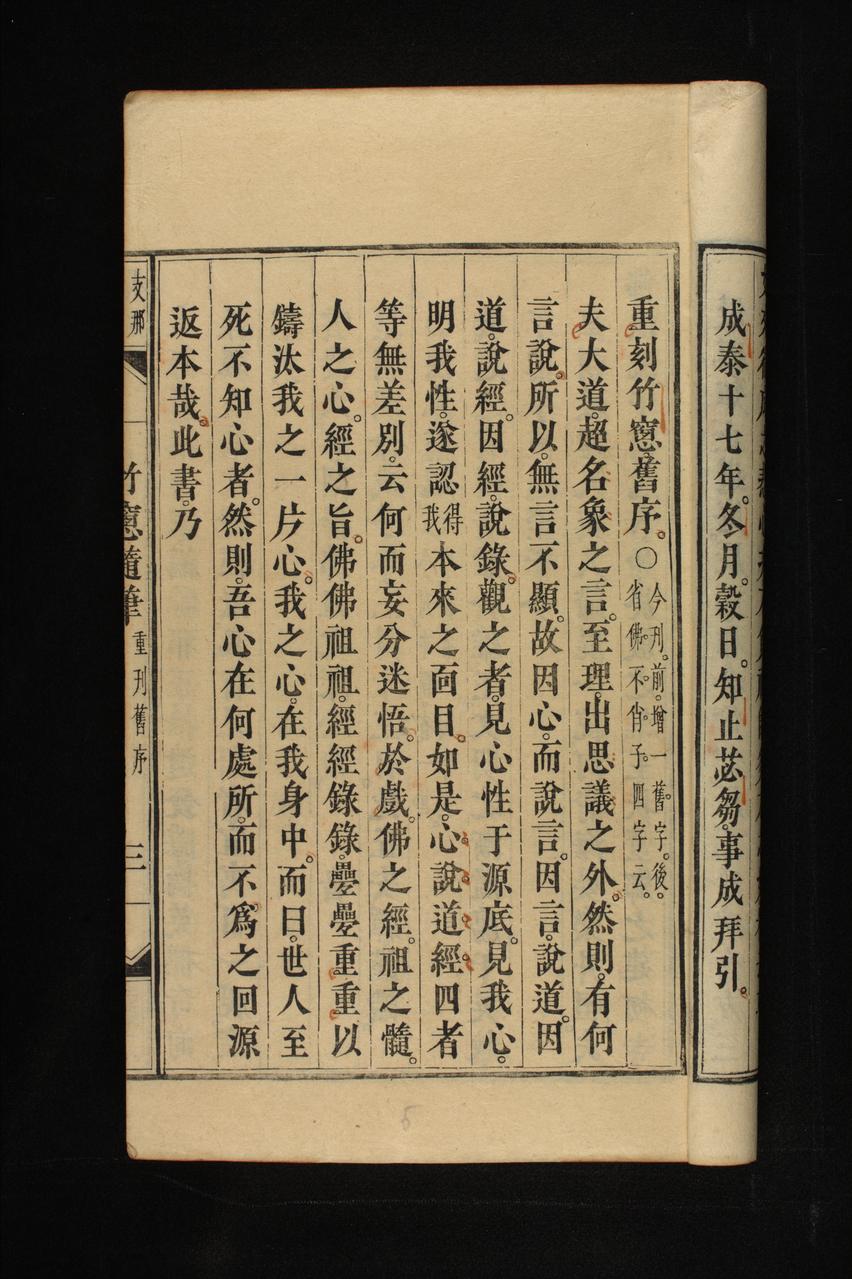 成泰十七年。冬月。穀日。知止苾芻。事成拜引。
重刻竹窻舊序。○今刋。前。增一舊。字。後。
省佛。不。肖。子。四字云。
夫大道。超名象之言。至理。出思議之外。然則。有何
言說。所以。無言不顯。故因心。而說言。因言。說道。因
道。說經。因經。說錄。觀之者。見心性于源底。見我心。
明我性。遂認得我本來之面目。如是。心說道經四者
等無差別。云何而妄分迷悟。於戲。佛之經。祖之髓。
人之心。經之旨。佛佛祖祖。經經錄錄。疊疊重重以
鑄汰我之一片心。我之心。在我身中。而曰。世人至
死不知心者。然則。吾心在何處所。而不爲之回源
返本哉。此書。乃
支那
竹窻隨筆 重刋舊序 三
5